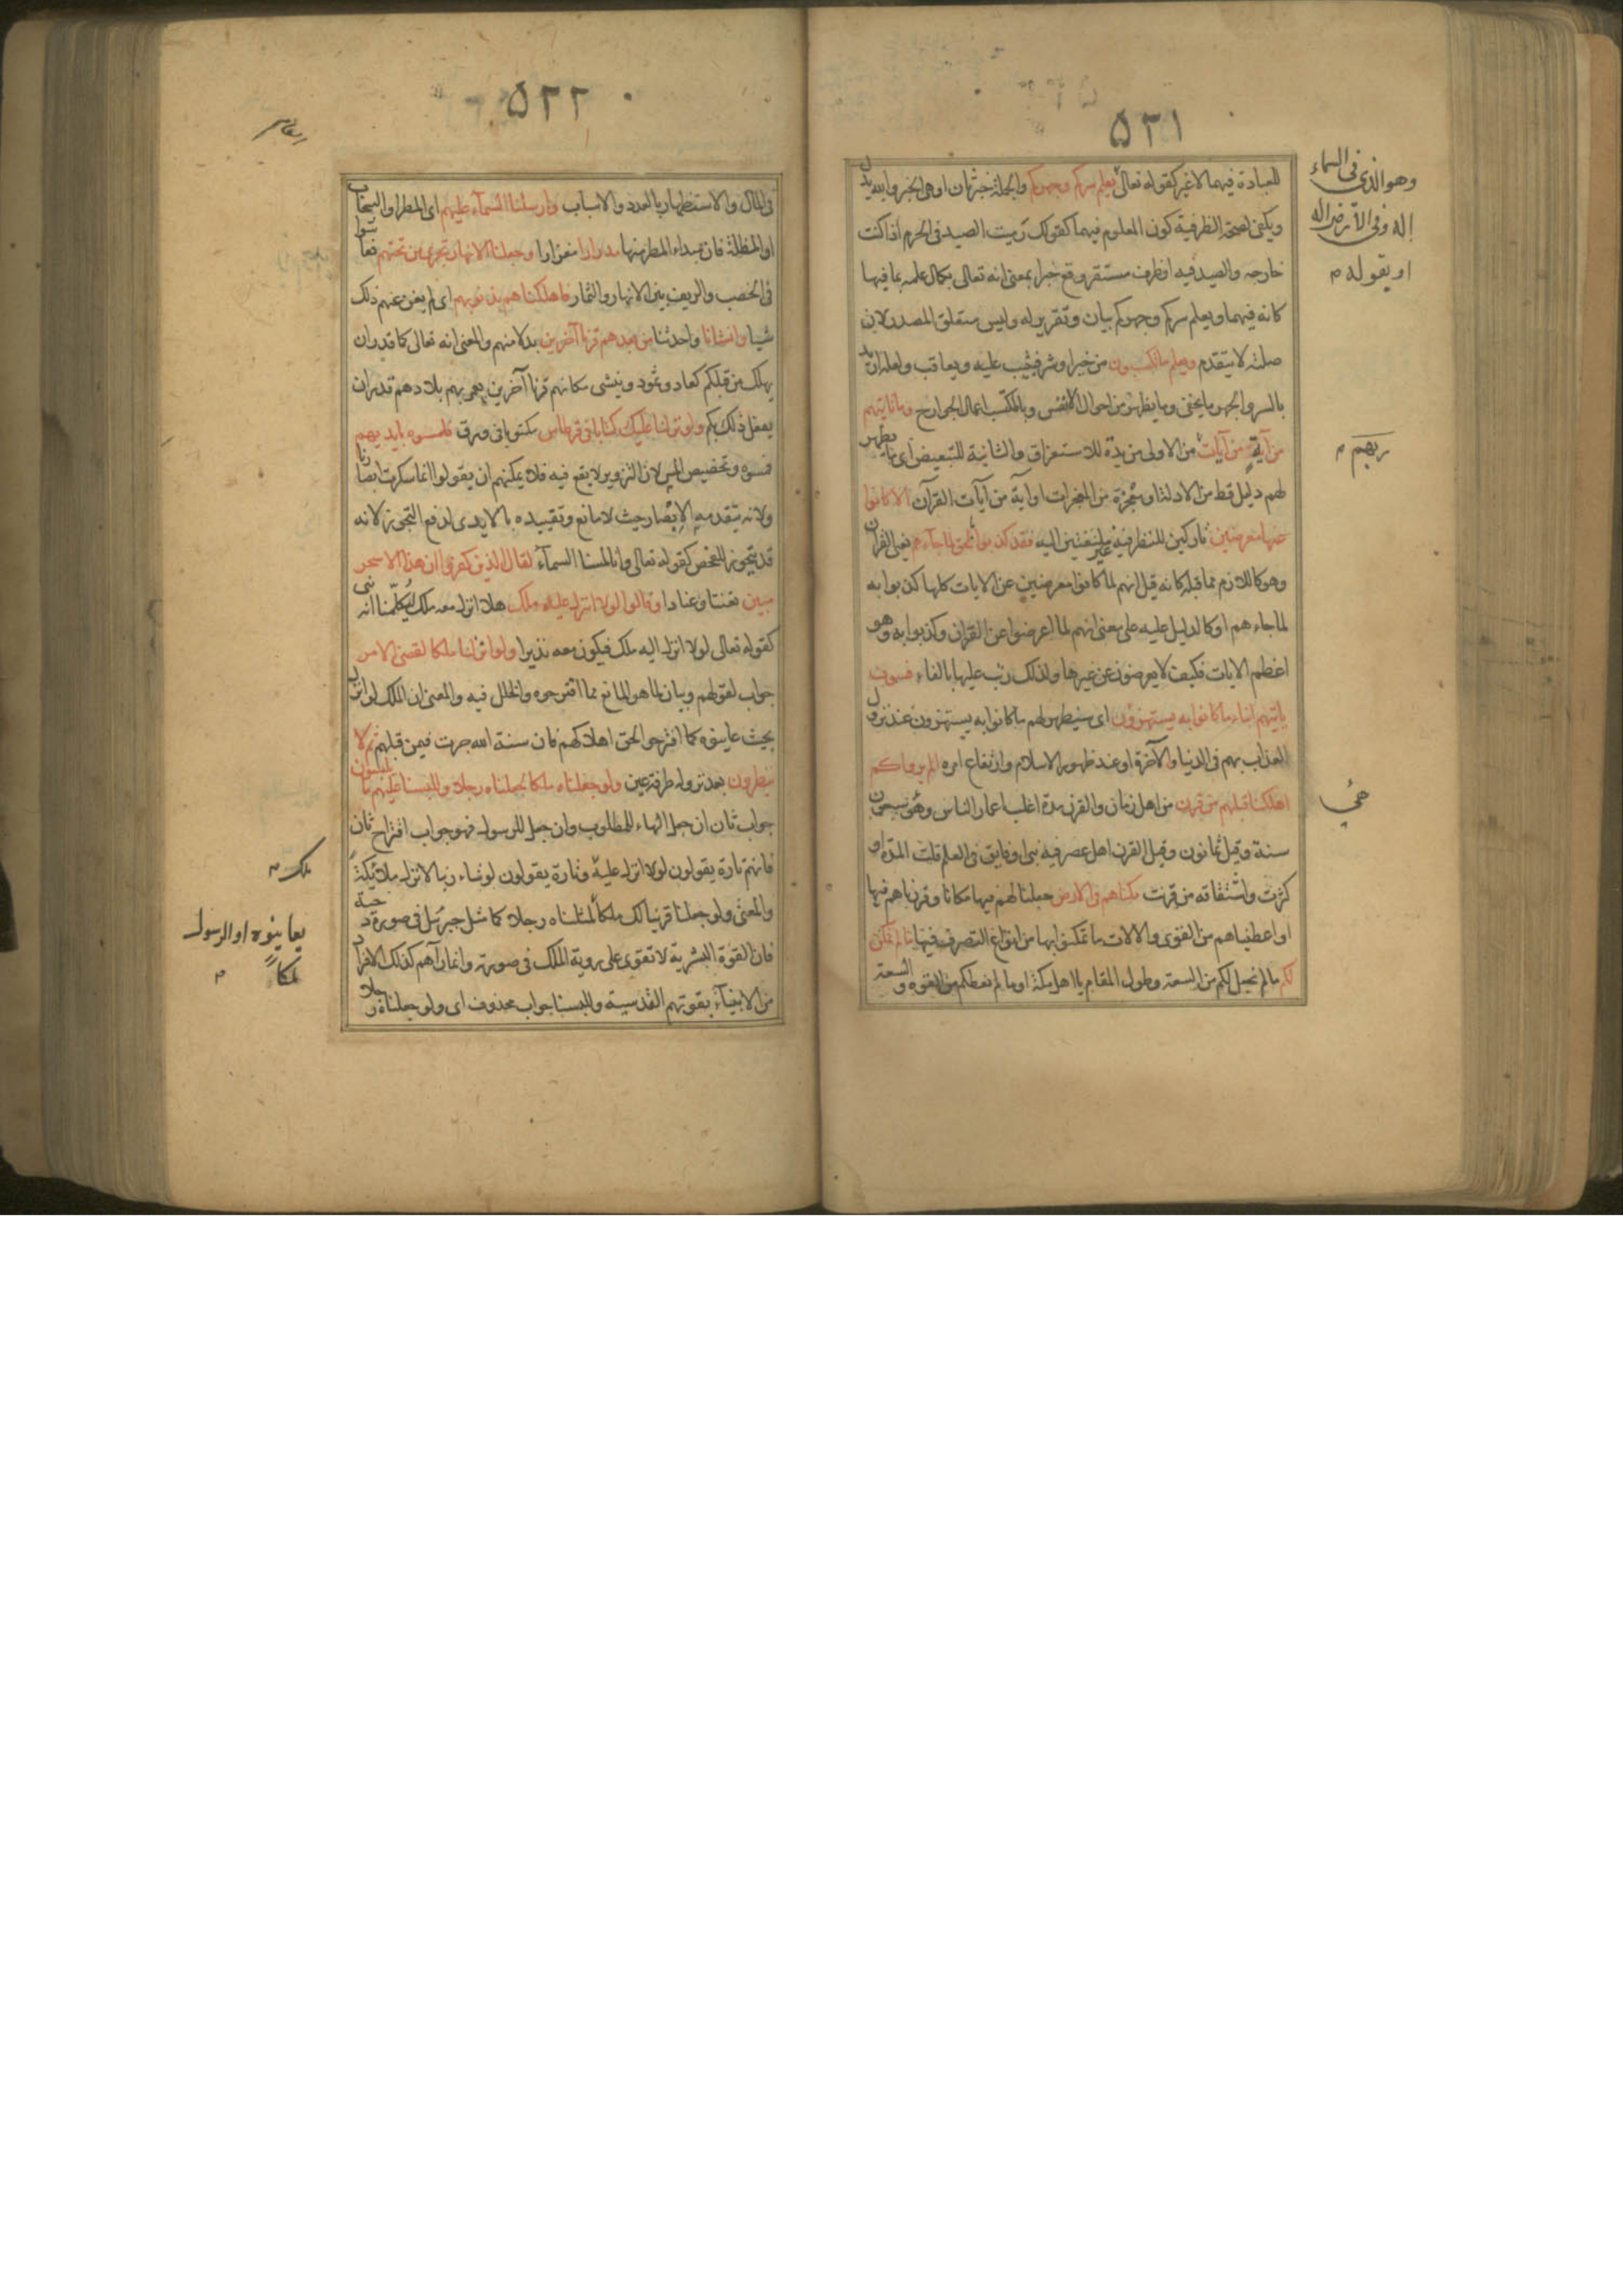 ٥٢١
للعبادة فيهما لاغير كقوله تعالى يعلم سركم وجهركم والجملة خبرثان اوهى الخبر والله بدل
ويكفى لصحة الظرفية كون المعلوم فيهما كقولك رميت الصيد فى الحرم اذا كنت
خارجه والصيد فيه اوظرف مستقر وقع خبرا بمعنى انه تعالى بكمال علمه بما فيها
كانه فيهما ويعلم سركم وجهركم بيان وتقرير له وليس متعلق المصدر لان
صلته لا يتقدم ويعلم ما تكسبون من خير او شر فيثيب عليه ويعاقب ولعله اريد
بالسر والجهر ما يخفى وما يظهر من احوال الانفس وبالمكتسب اعمال الجوارح وما تاتيهم
من آية من آيات من الاولى مزيدة للاستغراق والثانية للتبعيض اى ما يظهر
لهم دليل قط من الادلة او معجزة من المعجزات او آية من آيات القرآن الا كانوا
عنها معرضين تاركين للنظر فيه غير ملتفتين اليه فقد كذبوا بالحق لما جآءهم يعنى القرآن
وهو كاللازم مما قبله كانه قيل انهم لما كانوا معرضين عن الايات كلها كذبوا به
لما جاءهم او كالدليل عليه على معنى انهم لما اعرضوا عن القرآن وكذبوا به وهو
اعظم الايات فكيف لا يعرضون عن غيرها ولذلك رتب عليها بالفاء فسوف
ياتيهم انباء ما كانوا به يستهزؤن اى سيظهر لهم ما كانوا به يستهزون عند نزول
العذاب بهم فى الدنيا والآخرة او عند ظهور الاسلام وارتفاع امره الم يروا كم
اهلكنا قبلهم من قرن من اهل زمان والقرن مدة اغلب اعمار الناس وهى سبعون
سنة وقيل ثمانون وقيل القرن اهل عصر فيه نبى او فايق فى العلم قلت المدة او
كثرت واشتقاقه من قرنت مكناهم فى الارض جعلنا لهم فيها مكانا وقررناهم فيها
او اعطيناهم من القوى والالات ما تمكنوا بها من انواع التصرف فيها ما لم نمكن
لكم ما لم نجعل لكم من السعة وطول المقام يا اهل مكة او ما لم نعطكم من القوة والسعة
وهو الذى فى السماء
إله وفى الأرض إله
او بقوله م
ربهم م
٥٢٢
فى المال والاستظهار بالعدد والاسباب وارسلنا السمآء عليهم اى المطر او السحاب
او المظلة فان مبداء المطر منها مدرارا مغزارا وجعلنا الانهار تجرى من تحتهم فعاشوا
فى الخصب والريف بين الانهار والثمار فاهلكناهم بذنوبهم اى لم يغن عنهم ذلك
شيا وانشانا واحدثنا من بعدهم قرنا آخرين بدلا منهم والمعنى انه تعالى كما قدر ان
يهلك من قبلكم كعاد وثمود وينشى مكانهم قرنا آخرين يعمر بهم بلادهم قدر ان
يفعل ذلك بكم ولو نزلنا عليك كتابا فى قرطاس مكتوبا فى ورق فلمسوه بايديهم
فمسوه وتخصيص اللمس لان التزوير لا يقع فيه فلا يمكنهم ان يقولوا انما سكرت ابصارنا
ولانه يتقدمه الابصار حيث لا مانع وتقييده بالايدى لدفع التجوز لانه
قد يتجوز للفحص كقوله تعالى وانا لمسنا السمآء لقال الذين كفروا ان هذا الا سحر
مبين تعنتا وعنادا وقالوا لولا انزل عليه ملك هلا انزل معه ملك يكلمنا انه نبى
كقوله تعالى لولا انزل اليه ملك فيكون معه نذيرا ولو انزلنا ملكا لقضى الامر
جواب لقولهم وبيان لما هو المانع مما اقترحوه والخلل فيه والمعنى ان الملك لو انزل
بحيث عاينوه كما اقترحوا لحق اهلاكهم فان سنة الله جرت فيمن قبلهم ثم لا
ينظرون بعد نزوله طرفة عين ولو جعلناه ملكا لجعلناه رجلا وللبسنا عليهم ما يلبسون
جواب ثان ان جعل الهاء للمطلوب وان جعل للرسول فهو جواب اقتراح ثان
فانهم تارة يقولون لولا انزل عليه وتارة يقولون لو شاء ربنا لانزل ملائكة
والمعنى ولو جعلنا قرينا لك ملكا لمثلناه رجلا كما مثل جبرئيل فى صورة دحية
فان القوة البشرية لا تقوى على روية الملك فى صورته وانما رآهم كذلك الافراد
من الانبيآء بقوتهم القدسية وللبسنا جواب محذوف اى ولو جعلناه رجلا
ملك م
يعاينوه او الرسول
ملكا م